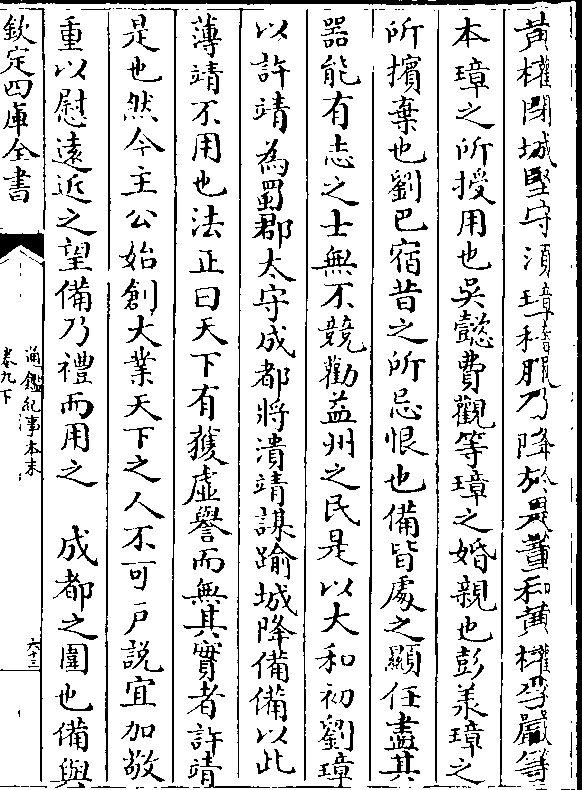 黄權閉城堅守須璋稽服乃降於是董和黄權李嚴等
本璋之所授用也吳懿費觀等璋之婚親也彭羕璋之
所擯棄也劉巴宿昔之所忌恨也備皆處之顯任盡其
器能有志之士無不競勸益州之民是以大和初劉璋
以許靖為蜀郡太守成都將潰靖謀踰城降備備以此
薄靖不用也法正曰天下有獲虛譽而無其實者許靖
是也然今主公始創大業天下之人不可戸說宜加敬
重以慰遠近之望備乃禮而用之 成都之圍也備與
欽定四庫全書
通鑑紀事本末
卷九下
六十三